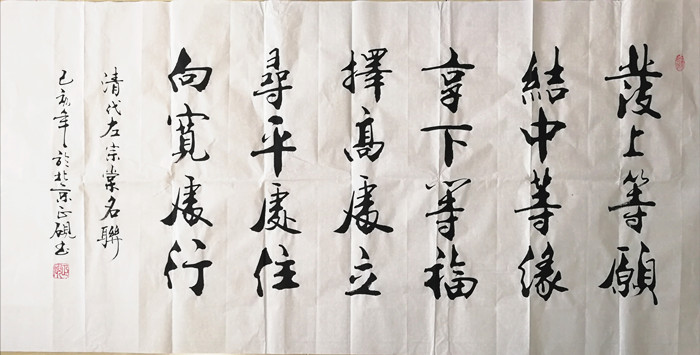 發上等願
結中等緣
享下等福
擇高處立
尋平處住
向寬處行
清代左宗棠名聯
己亥年於北京正硯書